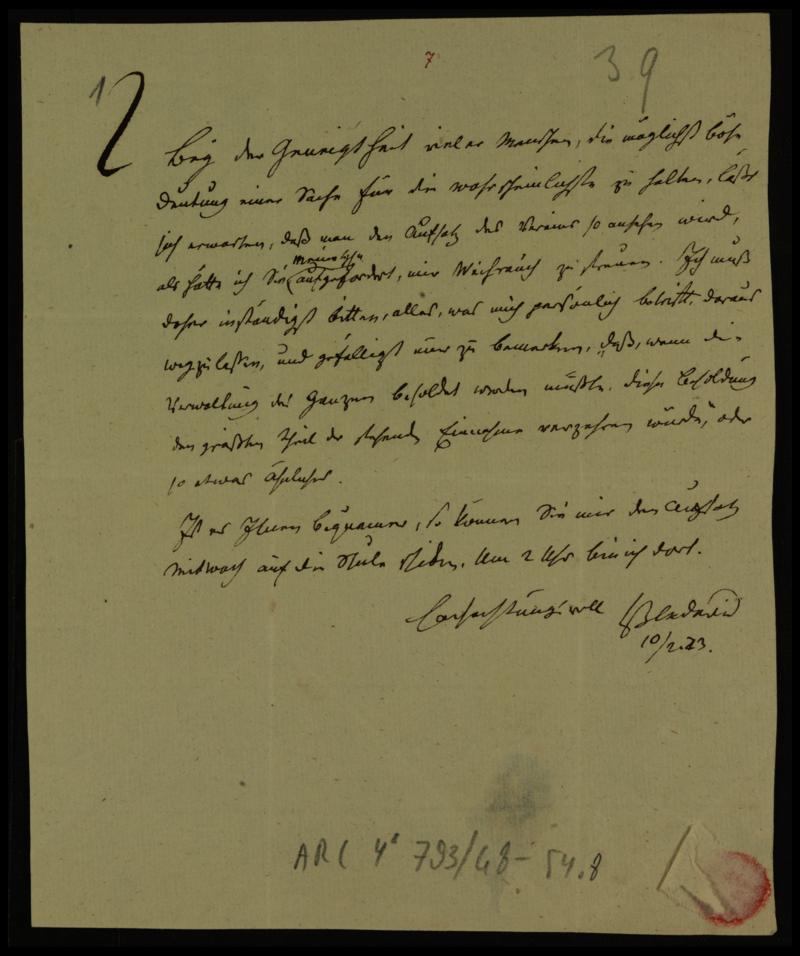 7
39
1
Bey der Geneigtheit vieler Menschen, die möglichst böse
Deutung einer Sache für die wahrscheinlichste zu halten, läßt
sich erwarten, daß man den Aufsatz des Vereins so ansehen wird,
als hätte ich Sie aufgefordert, mir Weihrauch zu streuen. Ich muß
daher inständigst bitten, alles, was mich persönlich betrifft, daraus
wegzulassen, und gefälligst nur zu bemerken, „daß, wenn die
Verwaltung des Ganzen besoldet werden müßte, diese Besoldung
den größten Theil der stehenden Einnahme verzehren würde,“ oder
so etwas Ähnliches.
Ist es Ihnen bequemer, so können Sie mir den Aufsatz
Mitwoch auf die Schule schicken. Um 2 Uhr bin ich dort.
Hochachtungsvoll LBendavid
10/2.23.
ARC 4° 793/48-54.8